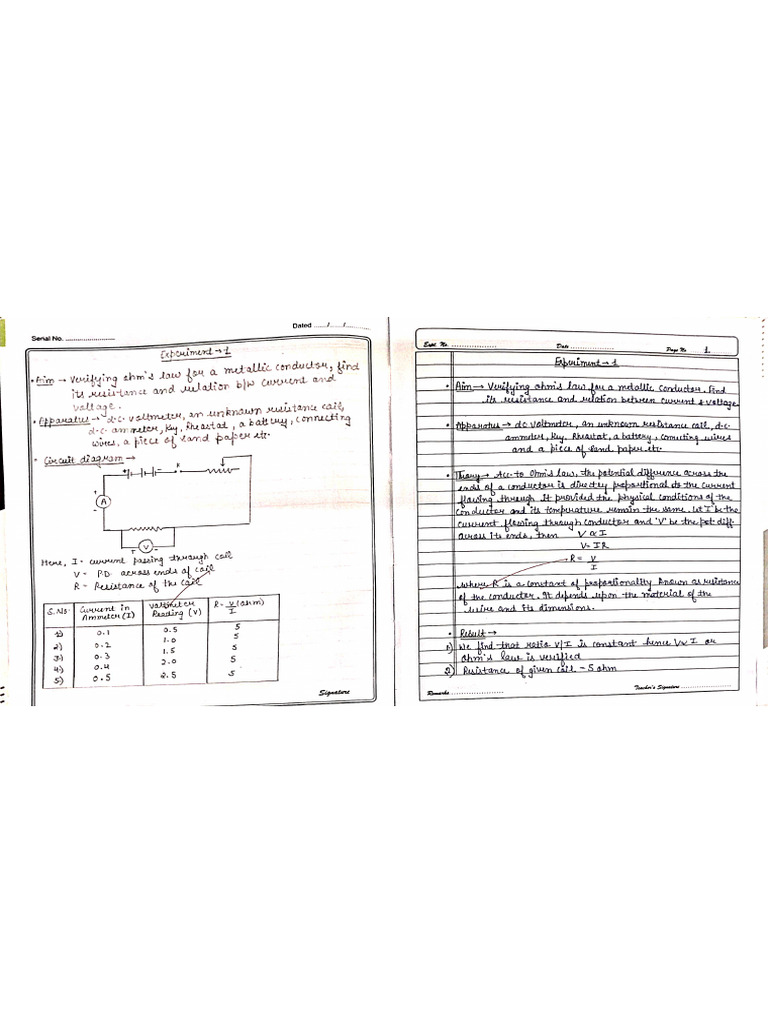 Dated ....../....../..........
Serial No. ......................
Experiment → 1
• Aim → Verifying ohm's law for a metallic conductor, find
its resistance and relation b/w current and
voltage.
• Apparatus → d.c. voltmeter, an unknown resistance coil,
d.c. ammeter, key, rheostat, a battery, connecting
wires, a piece of sand paper etc.
• Circuit diagram →
+ - K
+
A
-
+ V -
Here, I = current passing through coil
V = P.D across ends of coil
R = Resistance of the coil
S.No. Current in Ammeter (I) Voltmeter Reading (V) R = V/I (ohm)
1) 0.1 0.5 5
2) 0.2 1.0 5
3) 0.3 1.5 5
4) 0.4 2.0 5
5) 0.5 2.5 5
Signature
Expt. No. .................... Date .................... Page No. 1.
Experiment → 1
• Aim → Verifying ohm's law for a metallic conductor. Find
its resistance and relation between current & voltage
• Apparatus → d.c voltmeter, an unknown resistance coil, d.c.
ammeter, key, Rheostat, a battery, connecting wires
and a piece of sand paper etc.
• Theory → Acc. to Ohm's law, the potential difference across the
ends of a conductor is directly proportional to the current
flowing through it provided the physical conditions of the
conductor and its temperature remain the same. Let I be the
current flowing through conductor and 'V' be the pot. diff.
across its ends, then V ∝ I
V = IR
→ R = V/I
where R is a constant of proportionality known as resistance
of the conductor. It depends upon the material of the
wire and its dimensions.
• Result →
1) We find that ratio V/I is constant hence V ∝ I or
Ohm's law is verified
2) Resistance of given coil = 5 ohm
Remarks .................... Teacher's Signature ....................